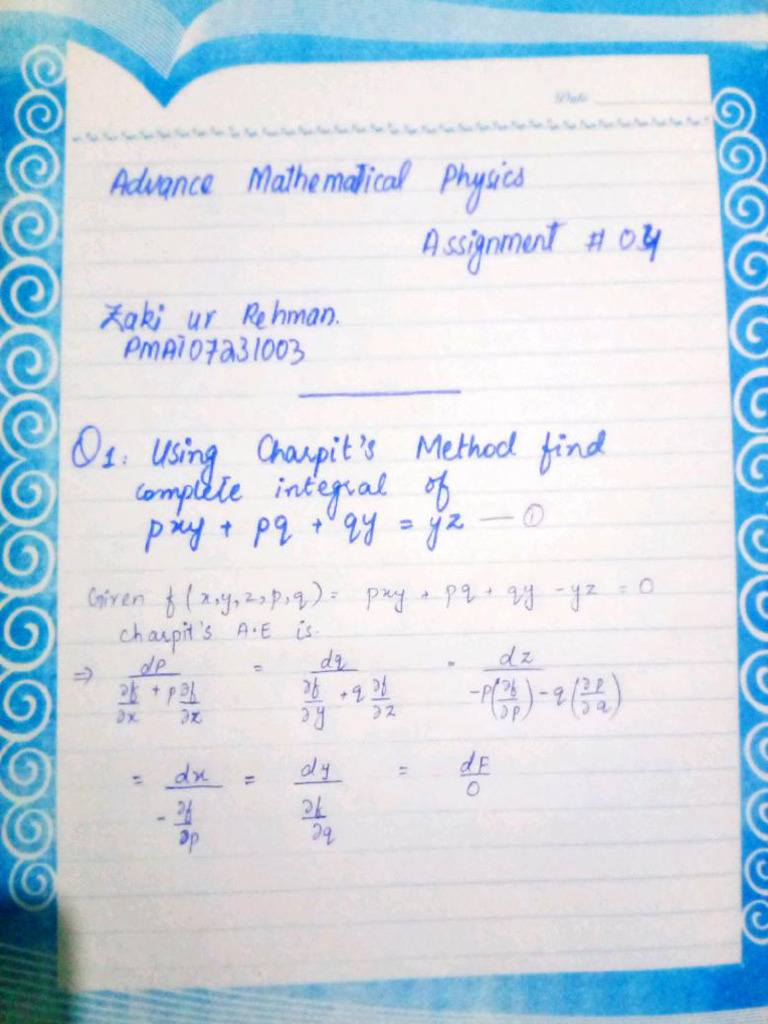 Date
Advance Mathematical Physics
Assignment # 04
Zaki ur Rehman.
PMAT07231003
Q1: Using Charpit's Method find
complete integral of
pxy + pq + qy = yz — ①
Given f(x,y,z,p,q) = pxy + pq + qy - yz = 0
charpit's A.E is.
⇒ dp/(∂f/∂x + p ∂f/∂z) = dq/(∂f/∂y + q ∂f/∂z) = dz/(-p(∂f/∂p) - q(∂p/∂q))
= dx/(-∂f/∂p) = dy/(∂f/∂q) = dF/0